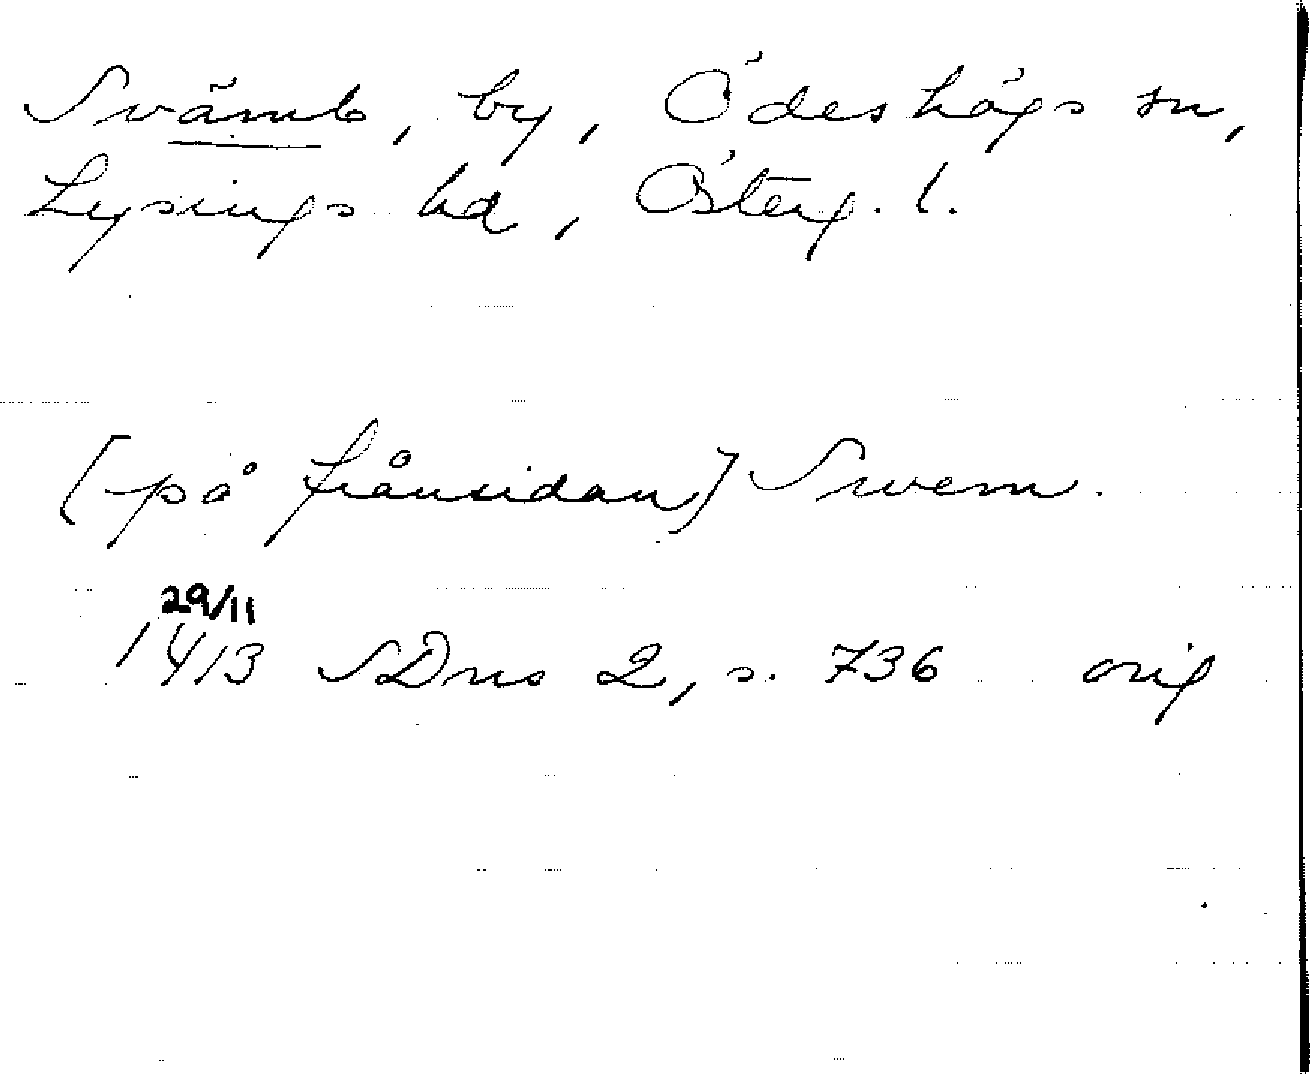 Svämb, by, Ödeshögs sn,
Lysings hd, Österg. l.
[på frånsidan] Swem.
29/11
1413 SDns 2, s. 736 orig